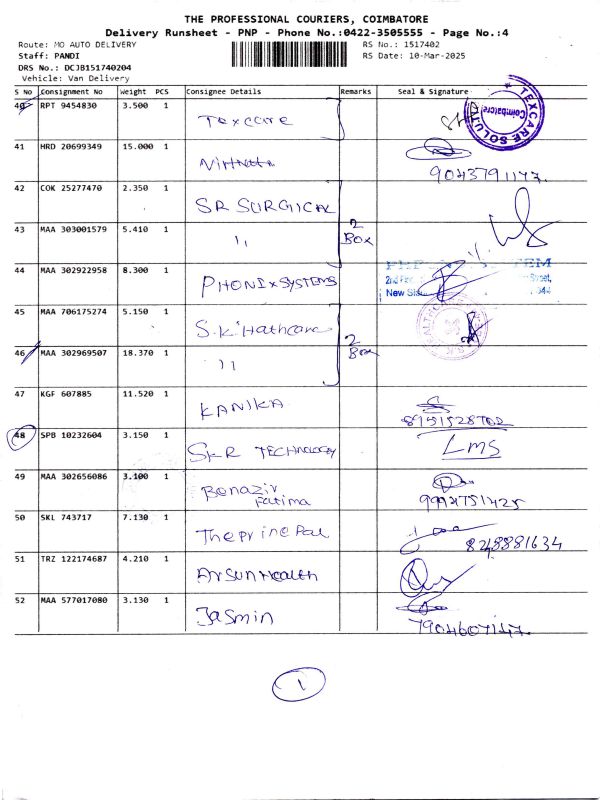 THE PROFESSIONAL COURIERS, COIMBATORE
Delivery Runsheet - PNP - Phone No.:0422-3505555 - Page No.:4
Route: MO AUTO DELIVERY RS No.: 1517402
Staff: PANDI RS Date: 10-Mar-2025
DRS No.: DCJB151740204
Vehicle: Van Delivery
S No Consignment No Weight PCS Consignee Details Remarks Seal & Signature
40 RPT 9454830 3.500 1 Texcare TEXCARE SOLUT Coimbatore
41 HRD 20699349 15.000 1 9043791147.
42 COK 25277470 2.350 1 SR SURGICAL
2 BOX
43 MAA 303001579 5.410 1 ''
44 MAA 302922958 8.300 1 PHONIX SYSTEMS
45 MAA 706175274 5.150 1 S.K Hathcare
2 BOX
46 MAA 302969507 18.370 1 ''
47 KGF 607885 11.520 1 KANIKA
48 SPB 10232604 3.150 1 SKR TECHNOLOGY LMS
49 MAA 302656086 3.100 1 Benazir Fatima 9994751425
50 SKL 743717 7.130 1 The prinepal 8248881634
51 TRZ 122174687 4.210 1 Arsun Health
52 MAA 577017080 3.130 1 Jasmin 7904607147.
1